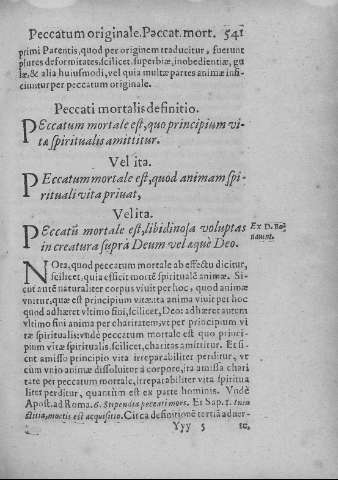 Peccatum originale. Peccat. mort. 541
primi Parentis, quod per originem traducitur, fuerunt
plures deformitates, scilicet, superbiæ, inobedientiæ, gu
læ, & alia huiusmodi, vel quia multæ partes animæ infi
ciuntur per peccatum originale.
Peccati mortalis definitio.
PEccatum mortale est, quo principium vi-
tæ spiritualis amittitur.
Vel ita.
PEccatum mortale est, quod animam spi-
rituali vita priuat,
Vel ita.
PEccatū mortale est, libidinosa voluptas
in creatura suprà Deum vel æquè Deo.
Ex D. Bo
nauent.
NOta, quod peccatum mortale ab effectu dicitur,
scilicet, quia efficit mortē spiritualē animæ. Si-
cut autē naturaliter corpus viuit per hoc, quod animæ
vnitur, quæ est principium vitæ: ita anima viuit per hoc
quod adhæret vltimo fini, scilicet, Deo: adhæret autem
vltimo fini anima per charitatem, vt per principium vi
tæ spiritualis: vnde peccatum mortale est quo princi-
pium vitæ spiritualis, scilicet, charitas amittitur. Et si-
cut amisso principio vita irreparabiliter perditur, vt
cum vnio animæ dissoluitur à corpore, ita amissa chari
tate per peccatum mortale, irreparabiliter vita spiritua
liter perditur, quantum est ex parte hominis. Vndè
Apost. ad Roma. 6. Stipendia peccati mors. Et Sap. 1. Iniu
stitia, mortis est acquisitio. Circa definitionē tertiā aduer-
Yyy 5 te,